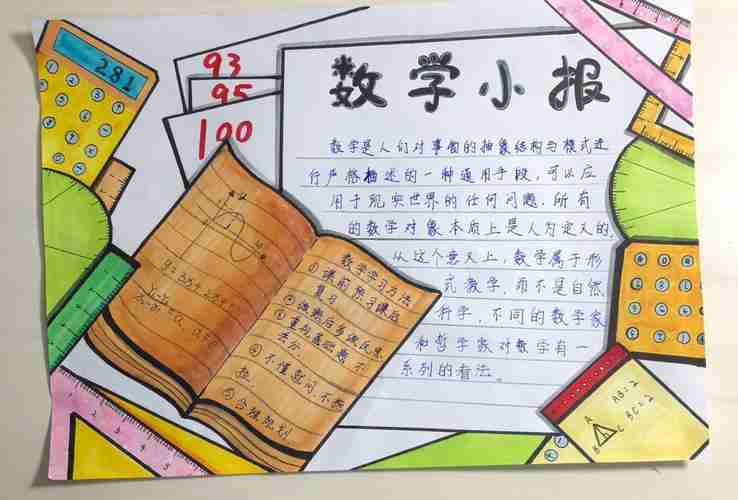 281
93
95
100
数学小报
数学是人们对事物的抽象结构与模式进
行严格描述的一种通用手段,可以应
用于现实世界的任何问题.所有
的数学对象本质上是人为定义的,
从这个意义上,数学属于形
式数学,而不是自然
科学,不同的数学家
和哲学家对数学有一
系列的看法。
数学学习方法
①课前预习课后
复习
③重视基础数
④不懂就问,不
⑤合理规划
AB=2
BC=2
A
B
C
1 2 3 4 5